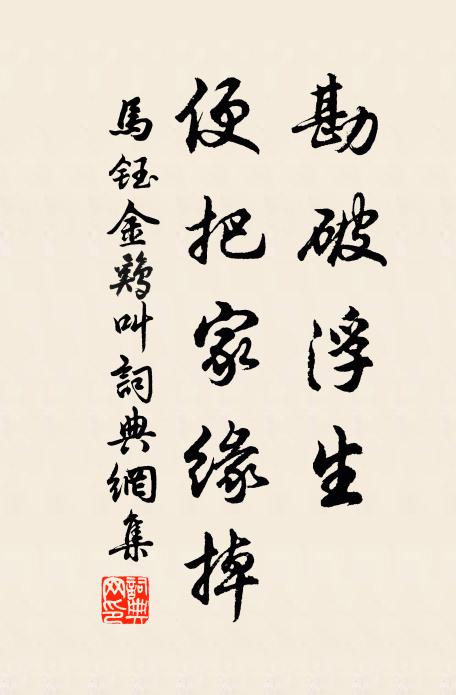 勘破浮生
便把家緣掉
馬鈺金鷄叫詞典網集
詞典网印